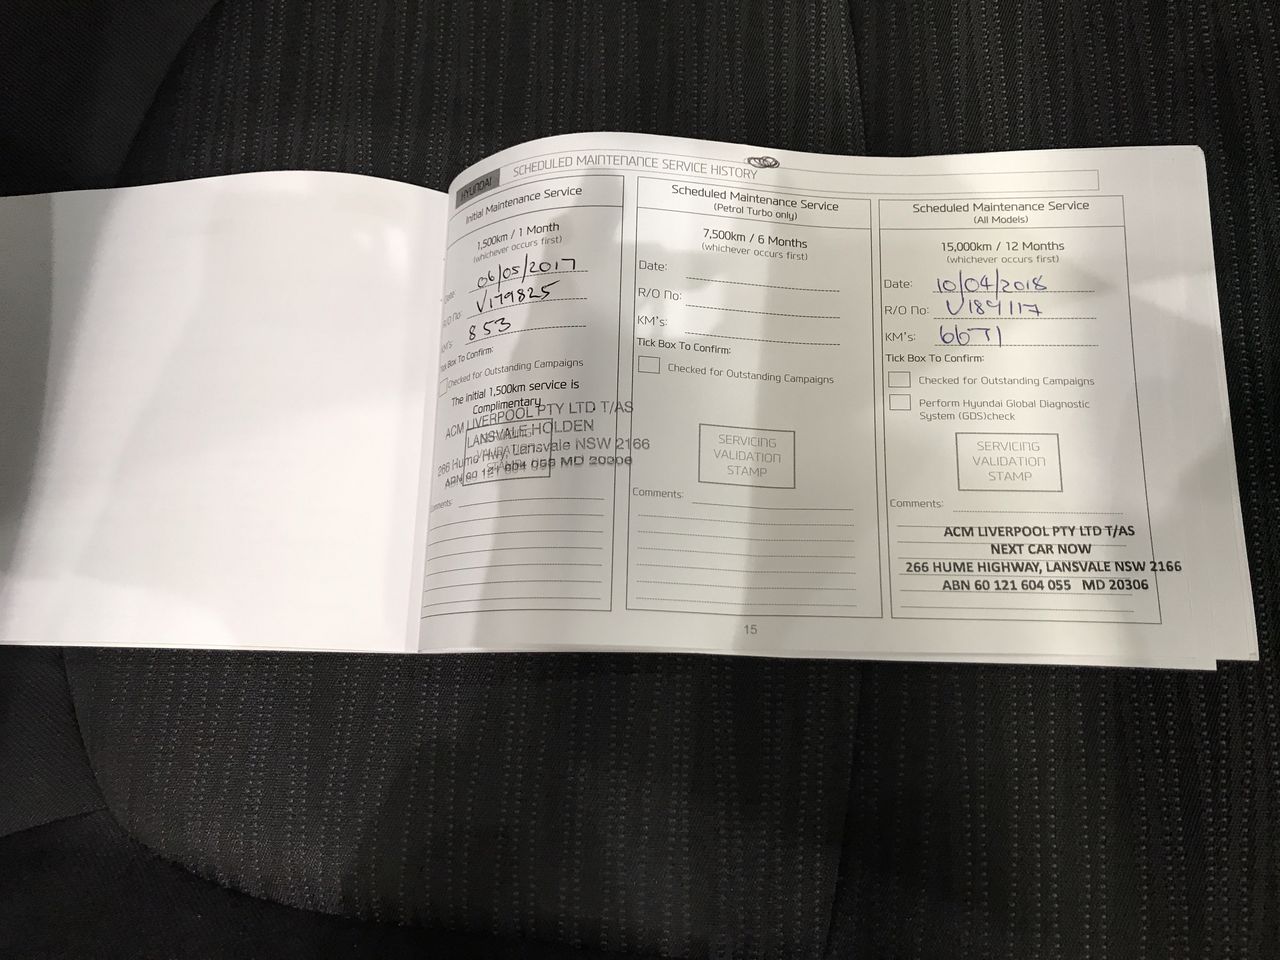 HYUNDAI
SCHEDULED MAINTENANCE SERVICE HISTORY
Initial Maintenance Service
1,500km / 1 Month
(whichever occurs first)
Date: 06/05/2017
R/O No: V179825
KM's: 853
Tick Box To Confirm:
Checked for Outstanding Campaigns
The initial 1,500km service is
Complimentary
ACM LIVERPOOL PTY LTD T/AS
LANSVALE HOLDEN
266 Hume Hwy, Lansvale NSW 2166
ABN 60 121 604 055 MD 20306
Comments:
Scheduled Maintenance Service
(Petrol Turbo only)
7,500km / 6 Months
(whichever occurs first)
Date:
R/O No:
KM's:
Tick Box To Confirm:
Checked for Outstanding Campaigns
SERVICING
VALIDATION
STAMP
Comments:
Scheduled Maintenance Service
(All Models)
15,000km / 12 Months
(whichever occurs first)
Date: 10/04/2018
R/O No: V189117
KM's: 6671
Tick Box To Confirm:
Checked for Outstanding Campaigns
Perform Hyundai Global Diagnostic
System (GDS)check
SERVICING
VALIDATION
STAMP
Comments:
ACM LIVERPOOL PTY LTD T/AS
NEXT CAR NOW
266 HUME HIGHWAY, LANSVALE NSW 2166
ABN 60 121 604 055 MD 20306
15